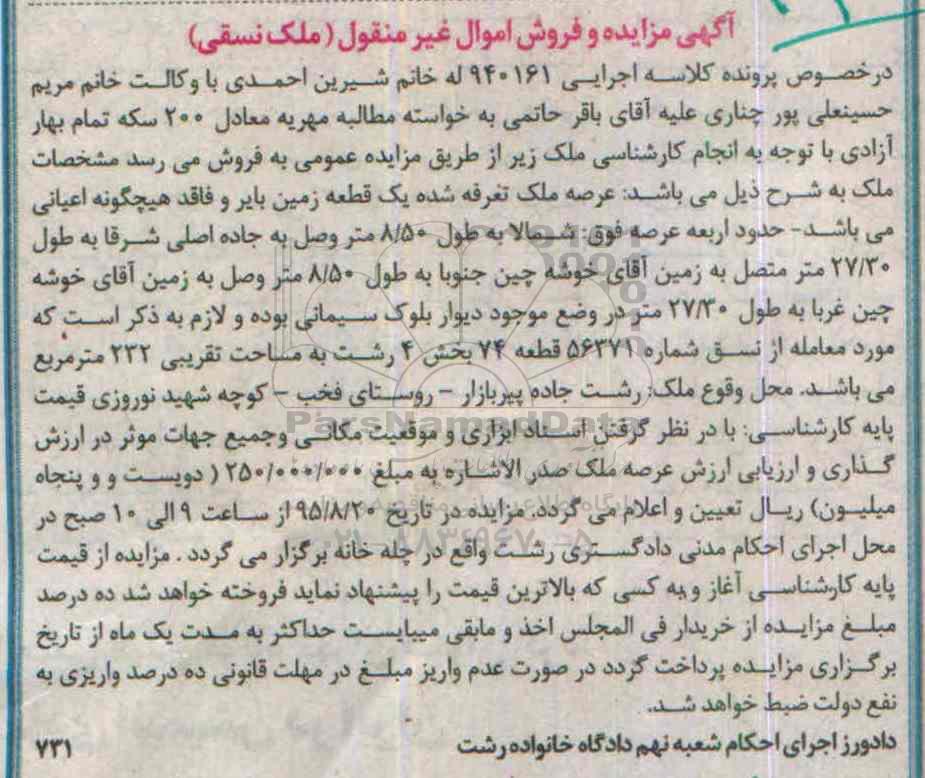 آگهی مزایده و فروش اموال غیر منقول (ملک نسقی)
درخصوص پرونده کلاسه اجرایی ۹۴۰۱۶۱ له خانم شیرین احمدی با وکالت خانم مریم
حسینعلی پور چناری علیه آقای باقر حاتمی به خواسته مطالبه مهریه معادل ۲۰۰ سکه تمام بهار
آزادی با توجه به انجام کارشناسی ملک زیر از طریق مزایده عمومی به فروش می رسد مشخصات
ملک به شرح ذیل می باشد: عرصه ملک تعرفه شده یک قطعه زمین بایر و فاقد هیچگونه اعیانی
می باشد- حدود اربعه عرصه فوق: شمالا به طول ۸/۵۰ متر وصل به جاده اصلی شرقا به طول
۲۷/۳۰ متر متصل به زمین آقای خوشه چین جنوبا به طول ۸/۵۰ متر وصل به زمین آقای خوشه
چین غربا به طول ۲۷/۳۰ متر در وضع موجود دیوار بلوک سیمانی بوده و لازم به ذکر است که
مورد معامله از نسق شماره ۵۶۳۷۱ قطعه ۷۴ بخش ۴ رشت به مساحت تقریبی ۲۳۲ مترمربع
می باشد. محل وقوع ملک: رشت جاده پیربازار – روستای فخب – کوچه شهید نوروزی قیمت
پایه کارشناسی: با در نظر گرفتن اسناد ابزاری و موقعیت مکانی وجمیع جهات موثر در ارزش
گذاری و ارزیابی ارزش عرصه ملک صدر الاشاره به مبلغ ۲۵۰/۰۰۰/۰۰۰ ( دویست و و پنجاه
میلیون) ریال تعیین و اعلام می گردد. مزایده در تاریخ ۹۵/۸/۲۰ از ساعت ۹ الی ۱۰ صبح در
محل اجرای احکام مدنی دادگستری رشت واقع در چله خانه برگزار می گردد . مزایده از قیمت
پایه کارشناسی آغاز و به کسی که بالاترین قیمت را پیشنهاد نماید فروخته خواهد شد ده درصد
مبلغ مزایده از خریدار فی المجلس اخذ و مابقی میبایست حداکثر به مدت یک ماه از تاریخ
برگزاری مزایده پرداخت گردد در صورت عدم واریز مبلغ در مهلت قانونی ده درصد واریزی به
نفع دولت ضبط خواهد شد.
دادورز اجرای احکام شعبه نهم دادگاه خانواده رشت
۷۳۱
ParsNamadData
۰۲۱-۸۸۳۴۹۶۷۰-۵